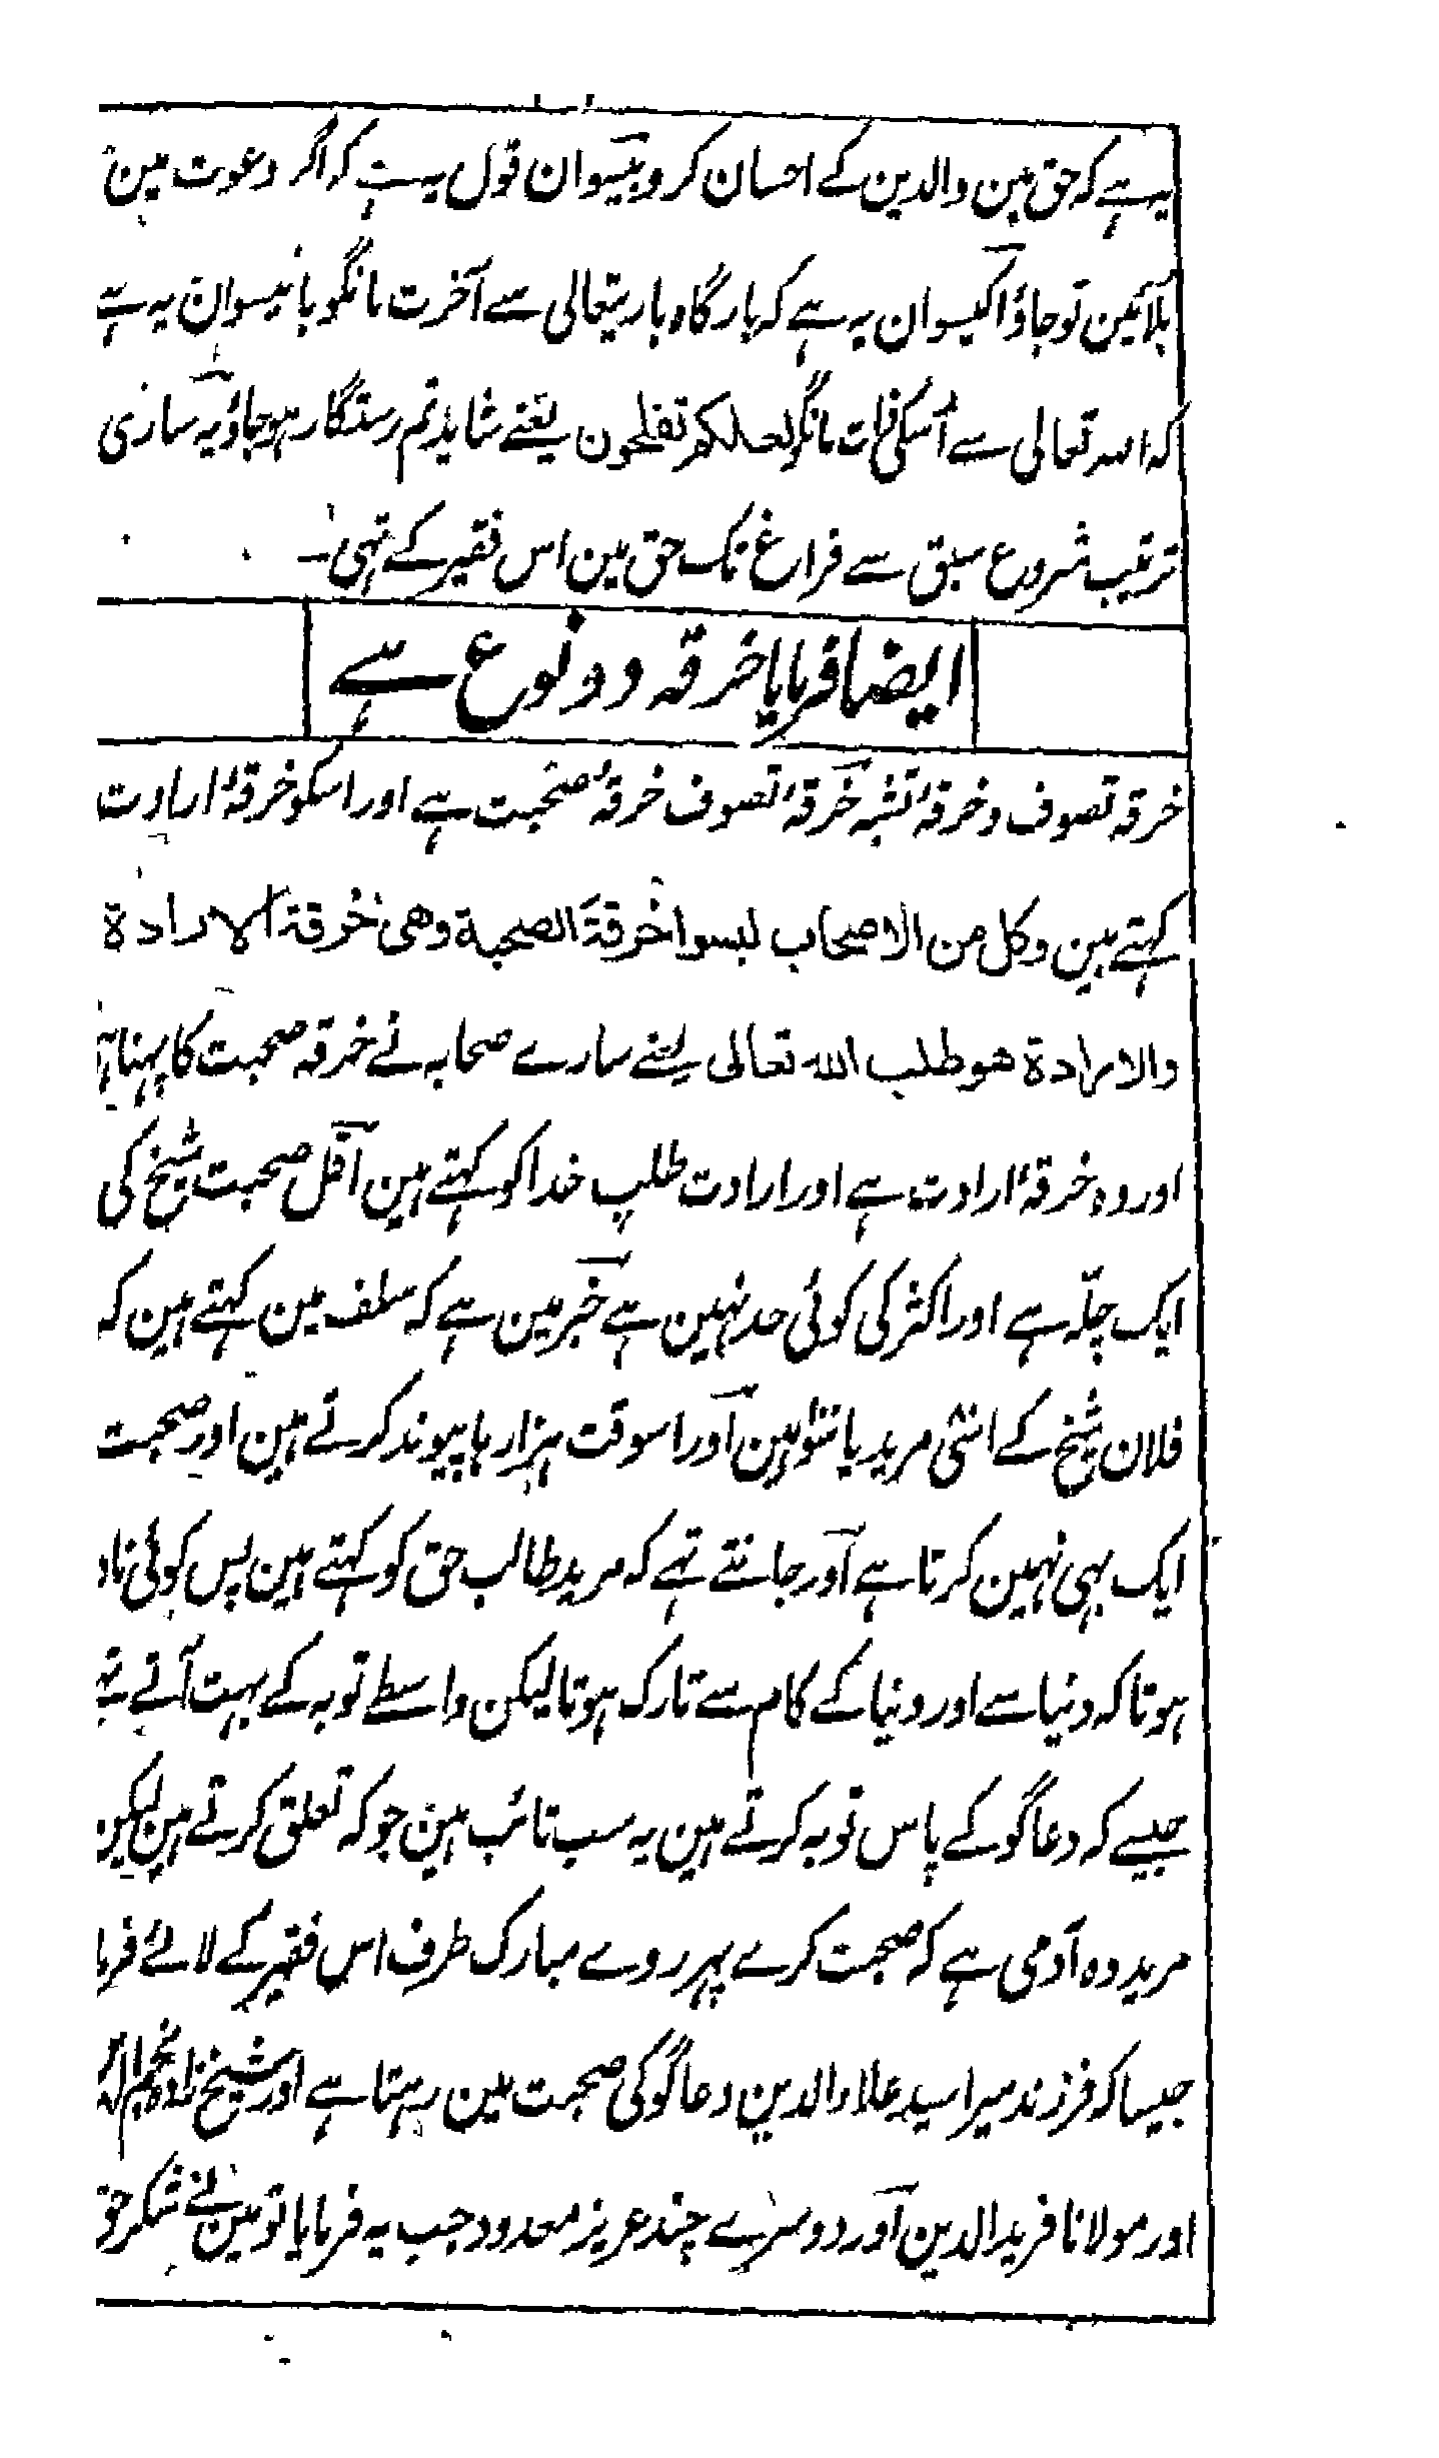 یہ ہے کہ حق مین والدین کے احسان کرو بیسوان قول یہ ہے کہ اگر دعوت مین
بلائین تو جاؤ اکیسوان یہ ہے کہ بارگاہ باریتعالی سے آخرت مانگو بائیسوان یہ ہے
کہ اللہ تعالی سے اُسکی مانگو لعلکم تفلحون یعنے شاید تم رستگار ہوجاؤ یہ ساری
ترتیب شروع سبق سے فراغ تک حق مین اس فقیر کے تہی۔
ایضا فرمایا خرقہ دو نوع ہے
خرقہ تصوف و خرقۂ تشبہ خرقۂ تصوف خرقۂ صحبت ہے اور اسکو خرقۂ ارادت
کہتے ہین وکل من الاصحاب لبسوا خرقة الصحبة وهی خرقة الارادة
والارادة هو طلب الله تعالی یعنے سارے صحابہ نے خرقہ صحبت کا پہنا ہے
اور وہ خرقۂ ارادت ہے اور ارادت طلب خدا کو کہتے ہین اقل صحبت شیخ کی
ایک چلّہ ہے اور اکثر کی کوئی حد نہین ہے خبر مین ہے کہ سلف مین کہتے ہین کہ
فلان شیخ کے اتنی مرید یا سَو ہین اور اسوقت ہزارہا پیوند کرتے ہین اور صحبت
ایک بہی نہین کرتا ہے اور جانتے تہے کہ مرید طالب حق کو کہتے ہین پس کوئی ناد
ہوتا کہ دنیا سے اور دنیا کے کام سے تارک ہوتا لیکن واسطے توبہ کے بہت آتے تہے
جیسے کہ دعاگو کے پاس توبہ کرتے ہین یہ سب تائب ہین جو کہ تعلق کرتے ہین لیکن
مرید وہ آدمی ہے کہ صحبت کرے پہر روے مبارک طرف اس فقیر کے لائے فرما
جیسا کہ فرزند میرا سید علاء الدین دعاگو کی صحبت مین رہتا ہے اور شیخ زادہ نجم الد
اور مولانا فرید الدین اور دوسرے چند عزیز معدود جب یہ فرمایا تو مین نے شکر حق